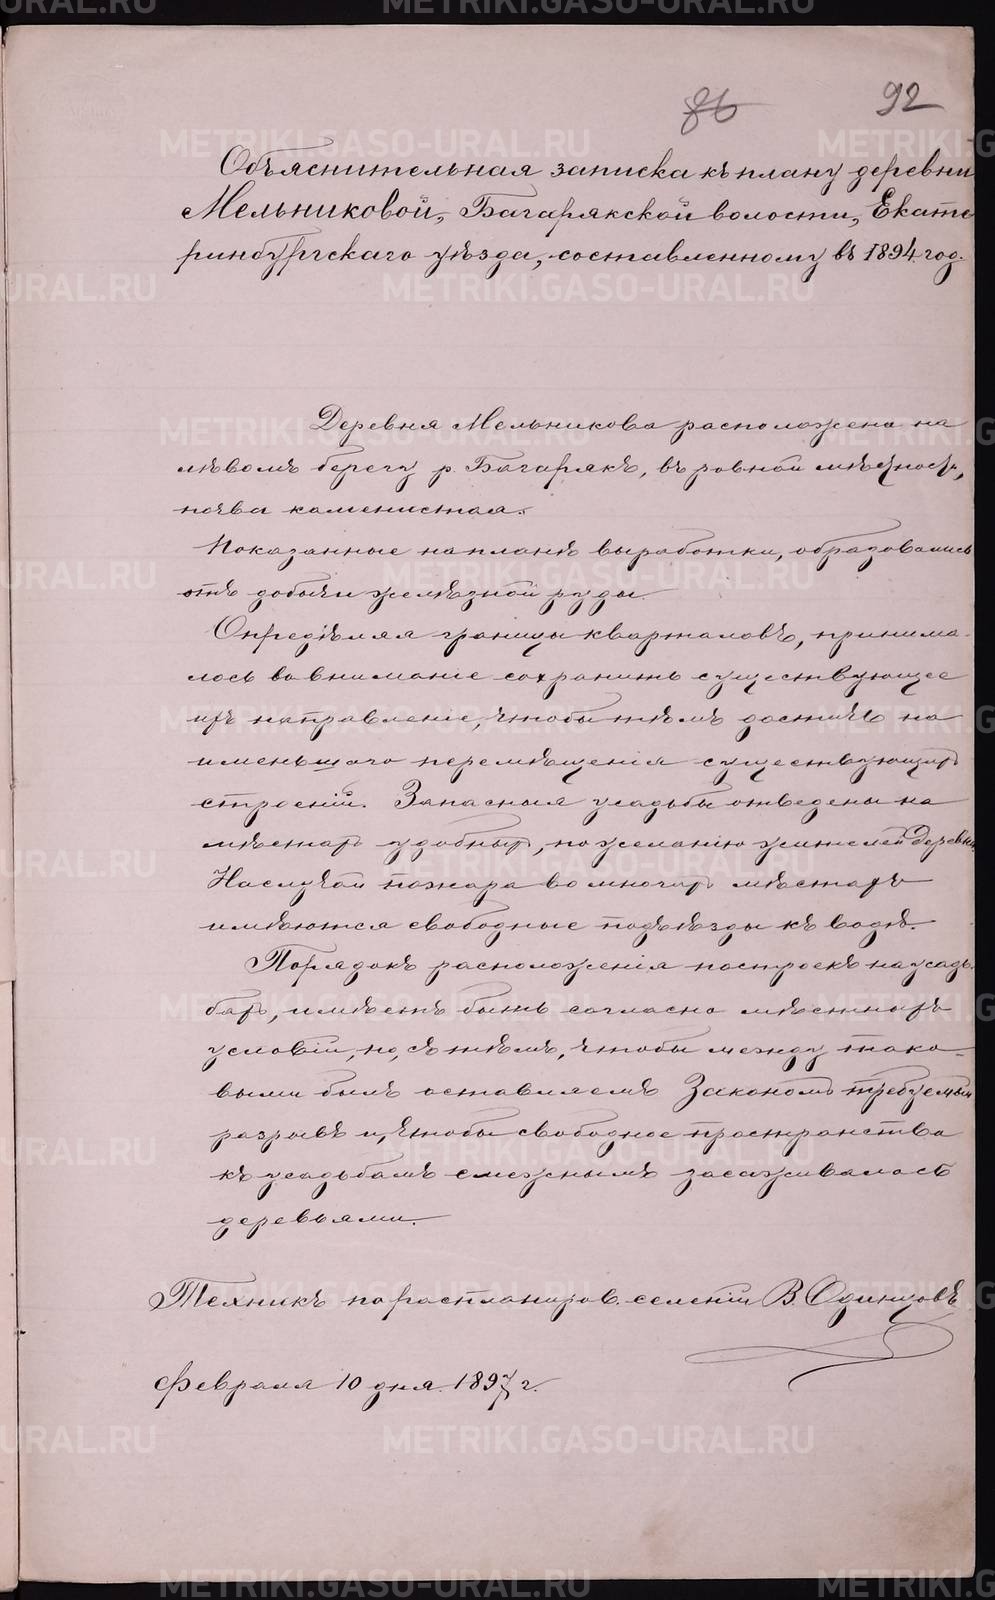 86 92
Объяснительная записка къ плану деревни
Мельниковой, Багарякской волости, Екате
ринбургскаго уѣзда, составленному въ 1894 год.
Деревня Мельникова расположена на
лѣвомъ берегу р. Багарякъ, въ ровной мѣстности,
почва каменистая.
Показанные на планѣ выработки, образовались
отъ добычи желѣзной руды.
Опредѣляя границы кварталовъ, принима-
лось во вниманіе сохранить существующее
ихъ направленіе, чтобы тѣмъ достичь на
именьшаго перемѣщенія существующихъ
строеній. Запасныя усадьбы отведены на
мѣстахъ удобныхъ, по желанію жителей деревни.
На случай пожара во многихъ мѣстахъ
имѣются свободные подъѣзды къ водѣ.
Порядокъ расположенія построекъ на усадь-
бахъ, имѣетъ быть согласно мѣстныхъ
условій, но, съ тѣмъ, чтобы между тако-
выми былъ оставляемъ Закономъ требуемый
разрывъ и, чтобы свободное пространство
къ усадьбамъ смежнымъ засаживалось
деревьями.
Техникъ по распланиров. селеній В. Одинцовъ
Февраля 10 дня 1897 г.
METRIKI.GASO-URAL.RU